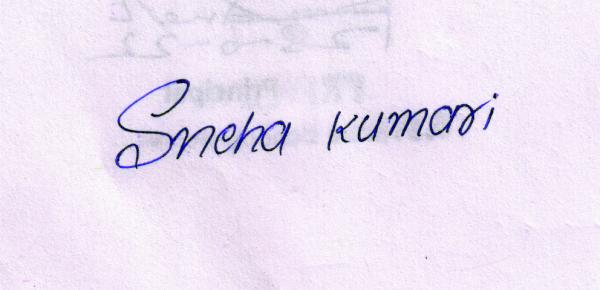 Sneha kumari